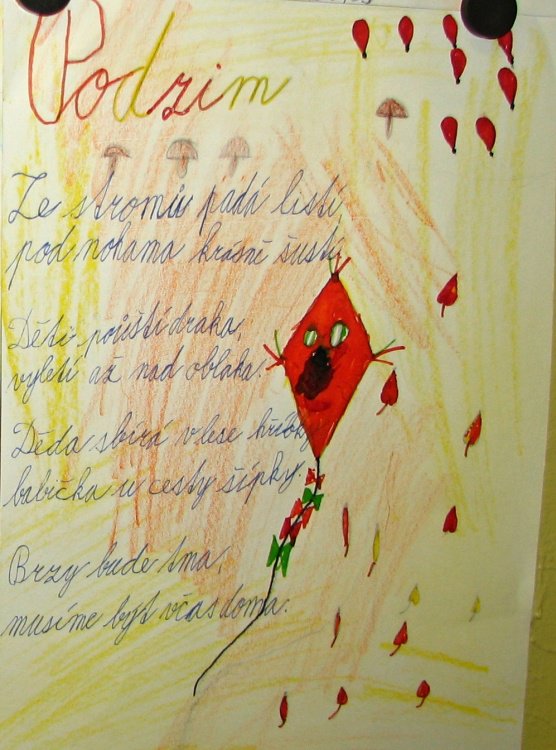 Podzim
Ze stromů padá listí,
pod nohama krásně šustí.
Děti pouští draka,
vyletí až nad oblaka.
Děda sbírá v lese hříbky,
babička u cesty šípky.
Brzy bude tma,
musíme být včas doma.